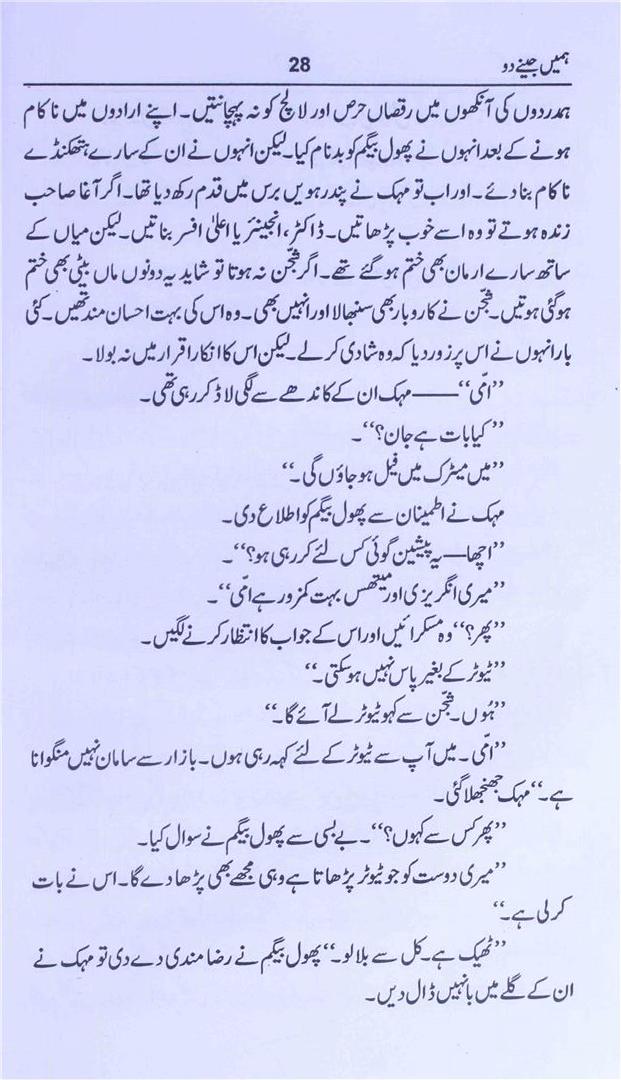 ہمیں جینے دو 28
ہمدردوں کی آنکھوں میں رقصاں حرص اور لالچ کو نہ پہچانتیں۔ اپنے ارادوں میں ناکام
ہونے کے بعد انہوں نے پھول بیگم کو بدنام کیا۔ لیکن انہوں نے ان کے سارے ہتھکنڈے
ناکام بنا دئے۔ اور اب تو مہک نے پندرھویں برس میں قدم رکھ دیا تھا۔ اگر آغا صاحب
زندہ ہوتے تو وہ اسے خوب پڑھاتیں۔ ڈاکٹر، انجینئر یا اعلیٰ افسر بناتیں۔ لیکن میاں کے
ساتھ سارے ارمان بھی ختم ہو گئے تھے۔ اگر شجّن نہ ہوتا تو شاید یہ دونوں ماں بیٹی بھی ختم
ہو گئی ہوتیں۔ شجّن نے کاروبار بھی سنبھالا اور انہیں بھی۔ وہ اس کی بہت احسان مند تھیں۔ کئی
بار انہوں نے اس پر زور دیا کہ وہ شادی کر لے۔ لیکن اس کا انکار اقرار میں نہ بولا۔
’’امّی‘‘ —— مہک ان کے کاندھے سے لگی لاڈ کر رہی تھی۔
’’کیا بات ہے جان؟‘‘۔
’’میں میٹرک میں فیل ہو جاؤں گی۔‘‘
مہک نے اطمینان سے پھول بیگم کو اطلاع دی۔
’’اچھا— یہ پیشین گوئی کس لئے کر رہی ہو؟‘‘۔
’’میری انگریزی اور میتھس بہت کمزور ہے امّی‘‘۔
’’پھر؟‘‘ وہ مسکرائیں اور اس کے جواب کا انتظار کرنے لگیں۔
’’ٹیوٹر کے بغیر پاس نہیں ہو سکتی۔‘‘
’’ہُوں۔ شجّن سے کہو ٹیوٹر لے آئے گا۔‘‘
’’امّی۔ میں آپ سے ٹیوٹر کے لئے کہہ رہی ہوں۔ بازار سے سامان نہیں منگوانا
ہے۔‘‘ مہک جھنجھلا گئی۔
’’پھر کس سے کہوں؟‘‘۔ بے بسی سے پھول بیگم نے سوال کیا۔
’’میری دوست کو جو ٹیوٹر پڑھاتا ہے وہی مجھے بھی پڑھا دے گا۔ اس نے بات
کر لی ہے۔‘‘
’’ٹھیک ہے۔ کل سے بلا لو۔‘‘ پھول بیگم نے رضا مندی دے دی تو مہک نے
ان کے گلے میں بانہیں ڈال دیں۔